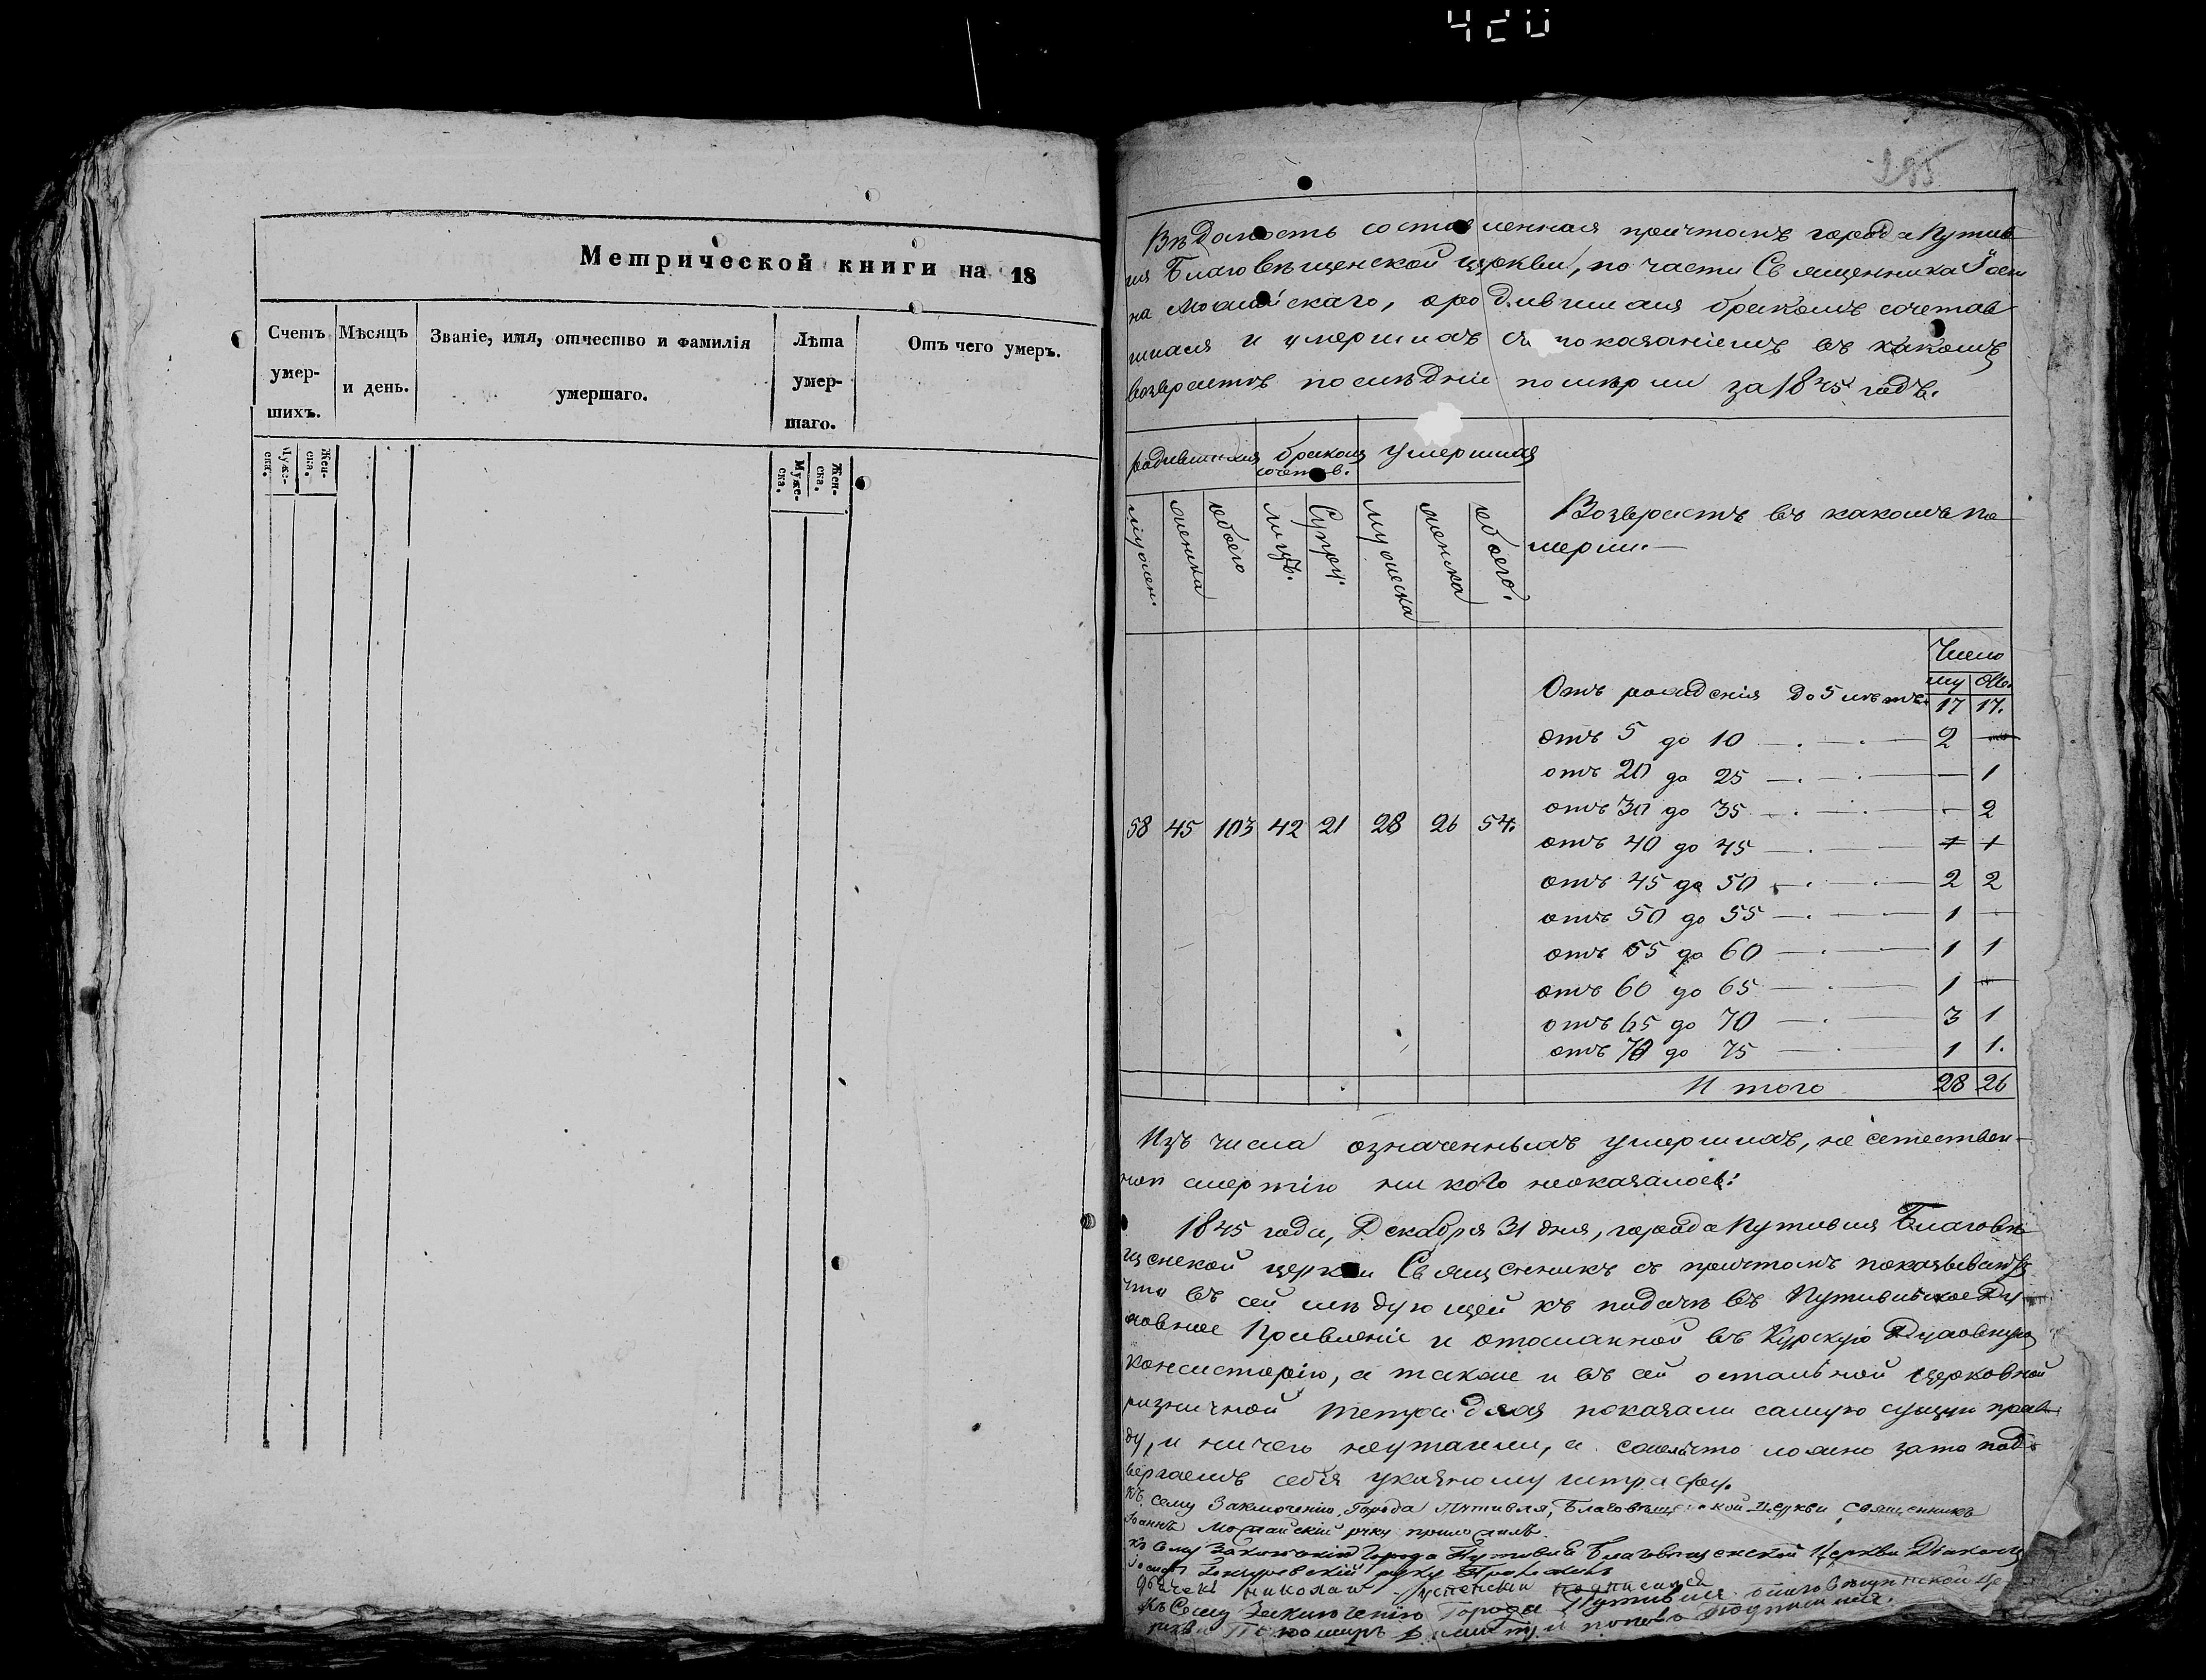 420
Метрической книги на 18
Счетъ умер-шихъ.
Мѣсяцъ и день.
Званіе, имя, отчество и фамилія умершаго.
Лѣта умер-шаго.
Отъ чего умеръ.
Муже-ска.
Жен-ска.
Муже-ска.
Жен-ска.
285
Вѣдомость составленная причтомъ города Путив
ля Благовѣщенской церкви, по части Священника Іоан
на Можайскаго, о родившихся бракомъ сочетав
шихся и умершихъ съ показаніемъ въ какомъ
возврастѣ послѣдніи померли за 1845 годъ.
родившихся бракомъ сочетав. умершихъ
мужеск. женска обоего лицъ. супруж. мужеска женска обоего.
Возврастъ въ какомъ по
мерли.
Число
му Же.
Отъ рожденія до 5 лѣтъ 17 17.
отъ 5 до 10 2 —
отъ 20 до 25 — 1
отъ 30 до 35 — 2
58 45 103 42 21 28 26 54.
отъ 40 до 45 1 1
отъ 45 до 50 2 2
отъ 50 до 55 1 —
отъ 55 до 60 1 1
отъ 60 до 65 1 —
отъ 65 до 70 3 1
отъ 70 до 75 1 1.
Итого 28 26
Изъ числа означенныхъ умершихъ, не естествен-
ной смертію никого неоказалось.
1845 года, Декабря 31 дня, города Путивля Благовѣ
щенской церкви Священникъ съ причтомъ показываютъ
что въ сей слѣдующей къ подачѣ въ Путивльское Ду
ховное Правленіе и отосланной въ Курскую Духовную
консисторію, а также и въ сей остальной церковной
ризничной тетрадяхъ показали самую сущую прав
ду, и ничего неутаили, а если что ложно за то под
вергаемъ себя указному штрафу.
Къ сему Заключенію Города Путивля, Благовѣщенской церкви священникъ
Іоаннъ Можайскій руку приложилъ.
Къ сему Заключенію Города Путивля Благовѣщенской Церкви Діаконъ
руку Приложилъ
Дьячекъ Николай Успенскій подписался
Къ Сему Заключенію Города Путивля благовѣщенской це
ркви Пономарь Димитрій Поповъ Подписался.